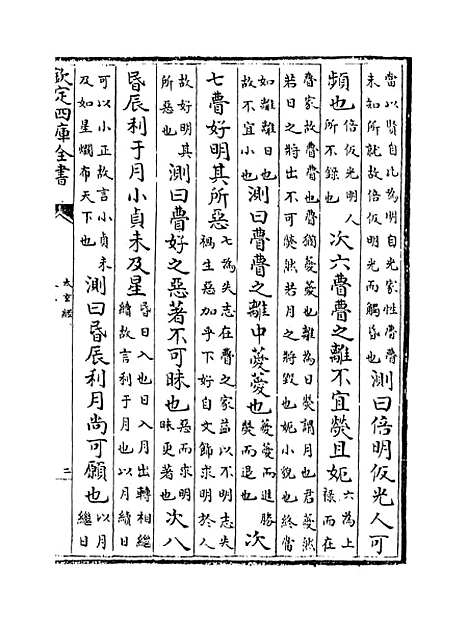 當以賢自比為明自光家性瞢瞢
未知所就故倍仮明光而觸冡也
測曰倍明仮光人可
頻也
倍仮光明人
所不錄也
次六瞢瞢之離不宜熒且妮
六為上
祿而在
瞢家故瞢瞢也猶薆薆也離為日熒謂月也君薆然
若日之將出不可熒然若月之將毀也妮小貌也終當
如離離日也
故不宜小也
測曰瞢瞢之離中薆薆也
薆薆而進勝
熒而退也
次
七瞢好明其所惡
七為失志在瞢之家益以不明志失
禍生惡加乎下好自文飾求明於人
故好明其
所惡也
測曰瞢好之惡著不可昧也
惡而求明
昧更著也
次八
昏辰利于月小貞未及星
昏日入也日入月出轉相繼
續故言利于月也以月續日
可以小正故言小貞未
及如星爛布天下也
測曰昏辰利月尚可願也
以月
繼日
欽定四庫全書
太玄經
二